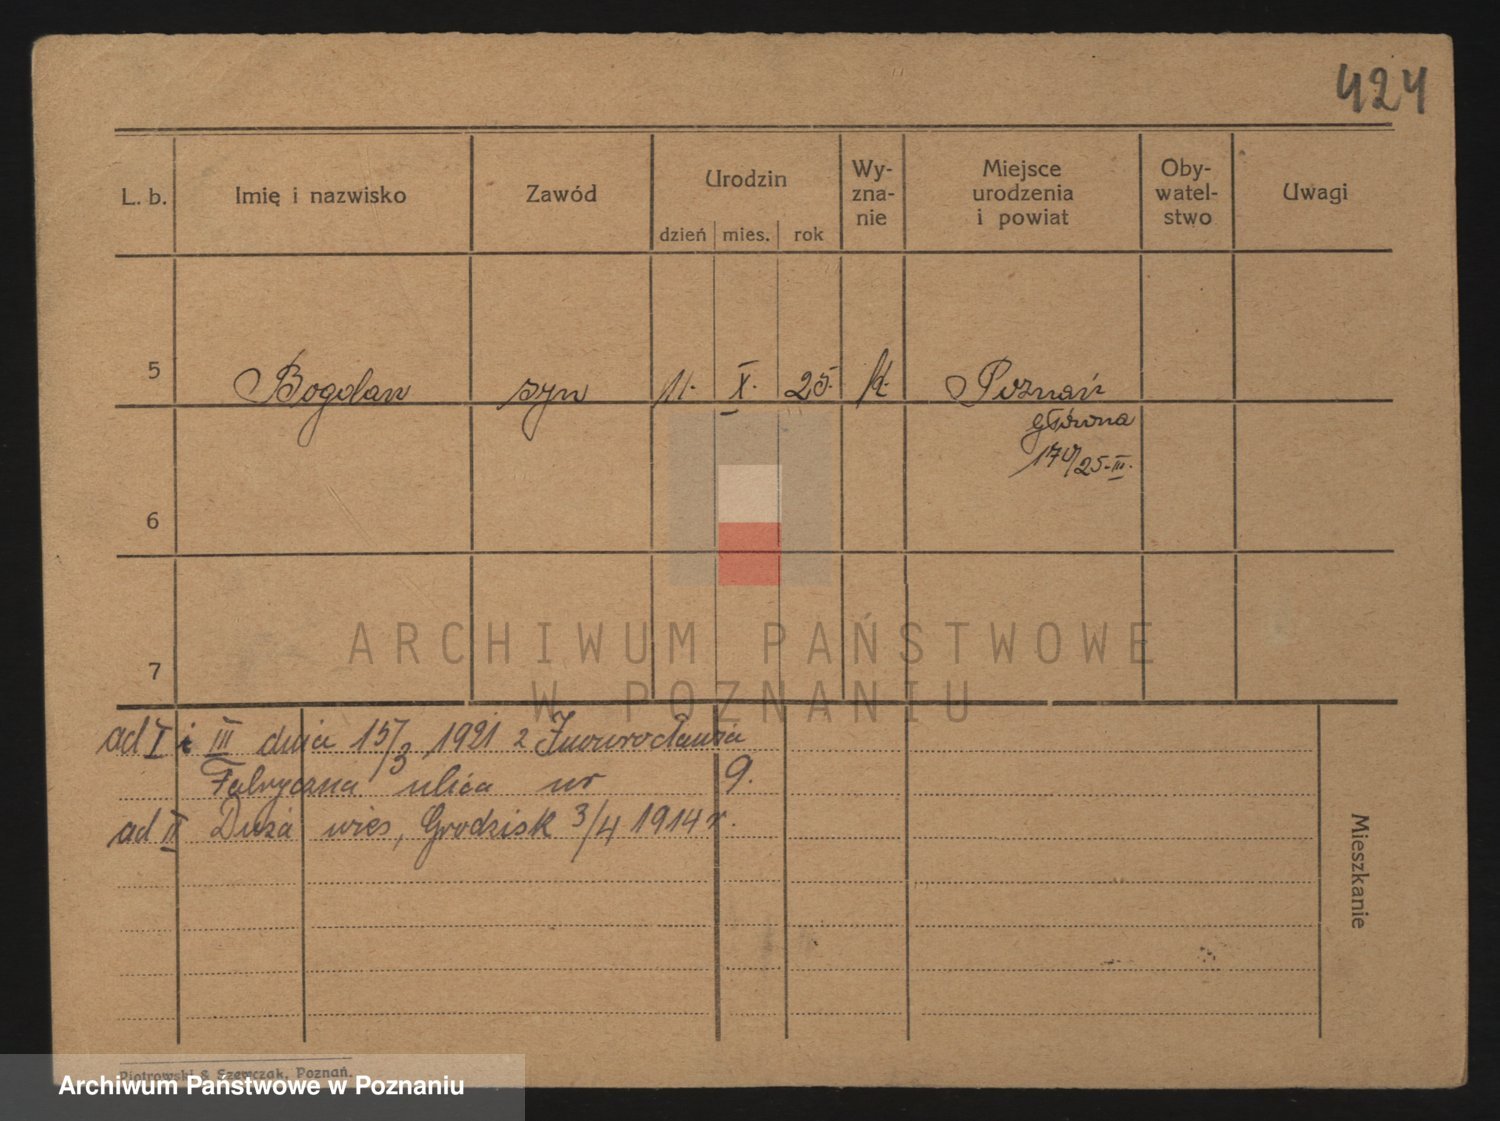 424
L. b. Imię i nazwisko Zawód Urodzin Wy-zna-nie Miejsce urodzenia i powiat Oby-watel-stwo Uwagi
dzień mies. rok
5 Bogdan syn 11. X. 25. k. Poznań
główna
/25-III.
6
7
ARCHIWUM PAŃSTWOWE
W POZNANIU
ad I i III dnia 15/3 1921 z Inowrocławia
Fabryczna ulica nr 9.
ad II Duża wieś, Grodzisk 3/4 1914 r.
Mieszkanie
Piotrowski & Szewczak, Poznań.
Archiwum Państwowe w Poznaniu